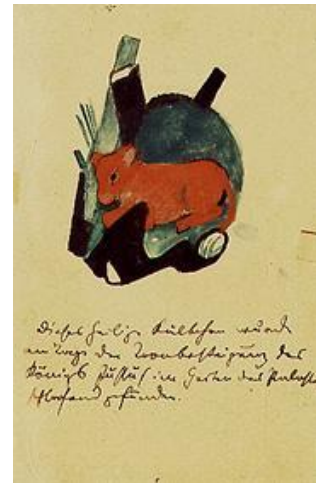 Dieses heilige Kälbchen wurde
am Tage der Tronbesteigung des
Königs Jussuf im Garten des Palastes
gefunden.